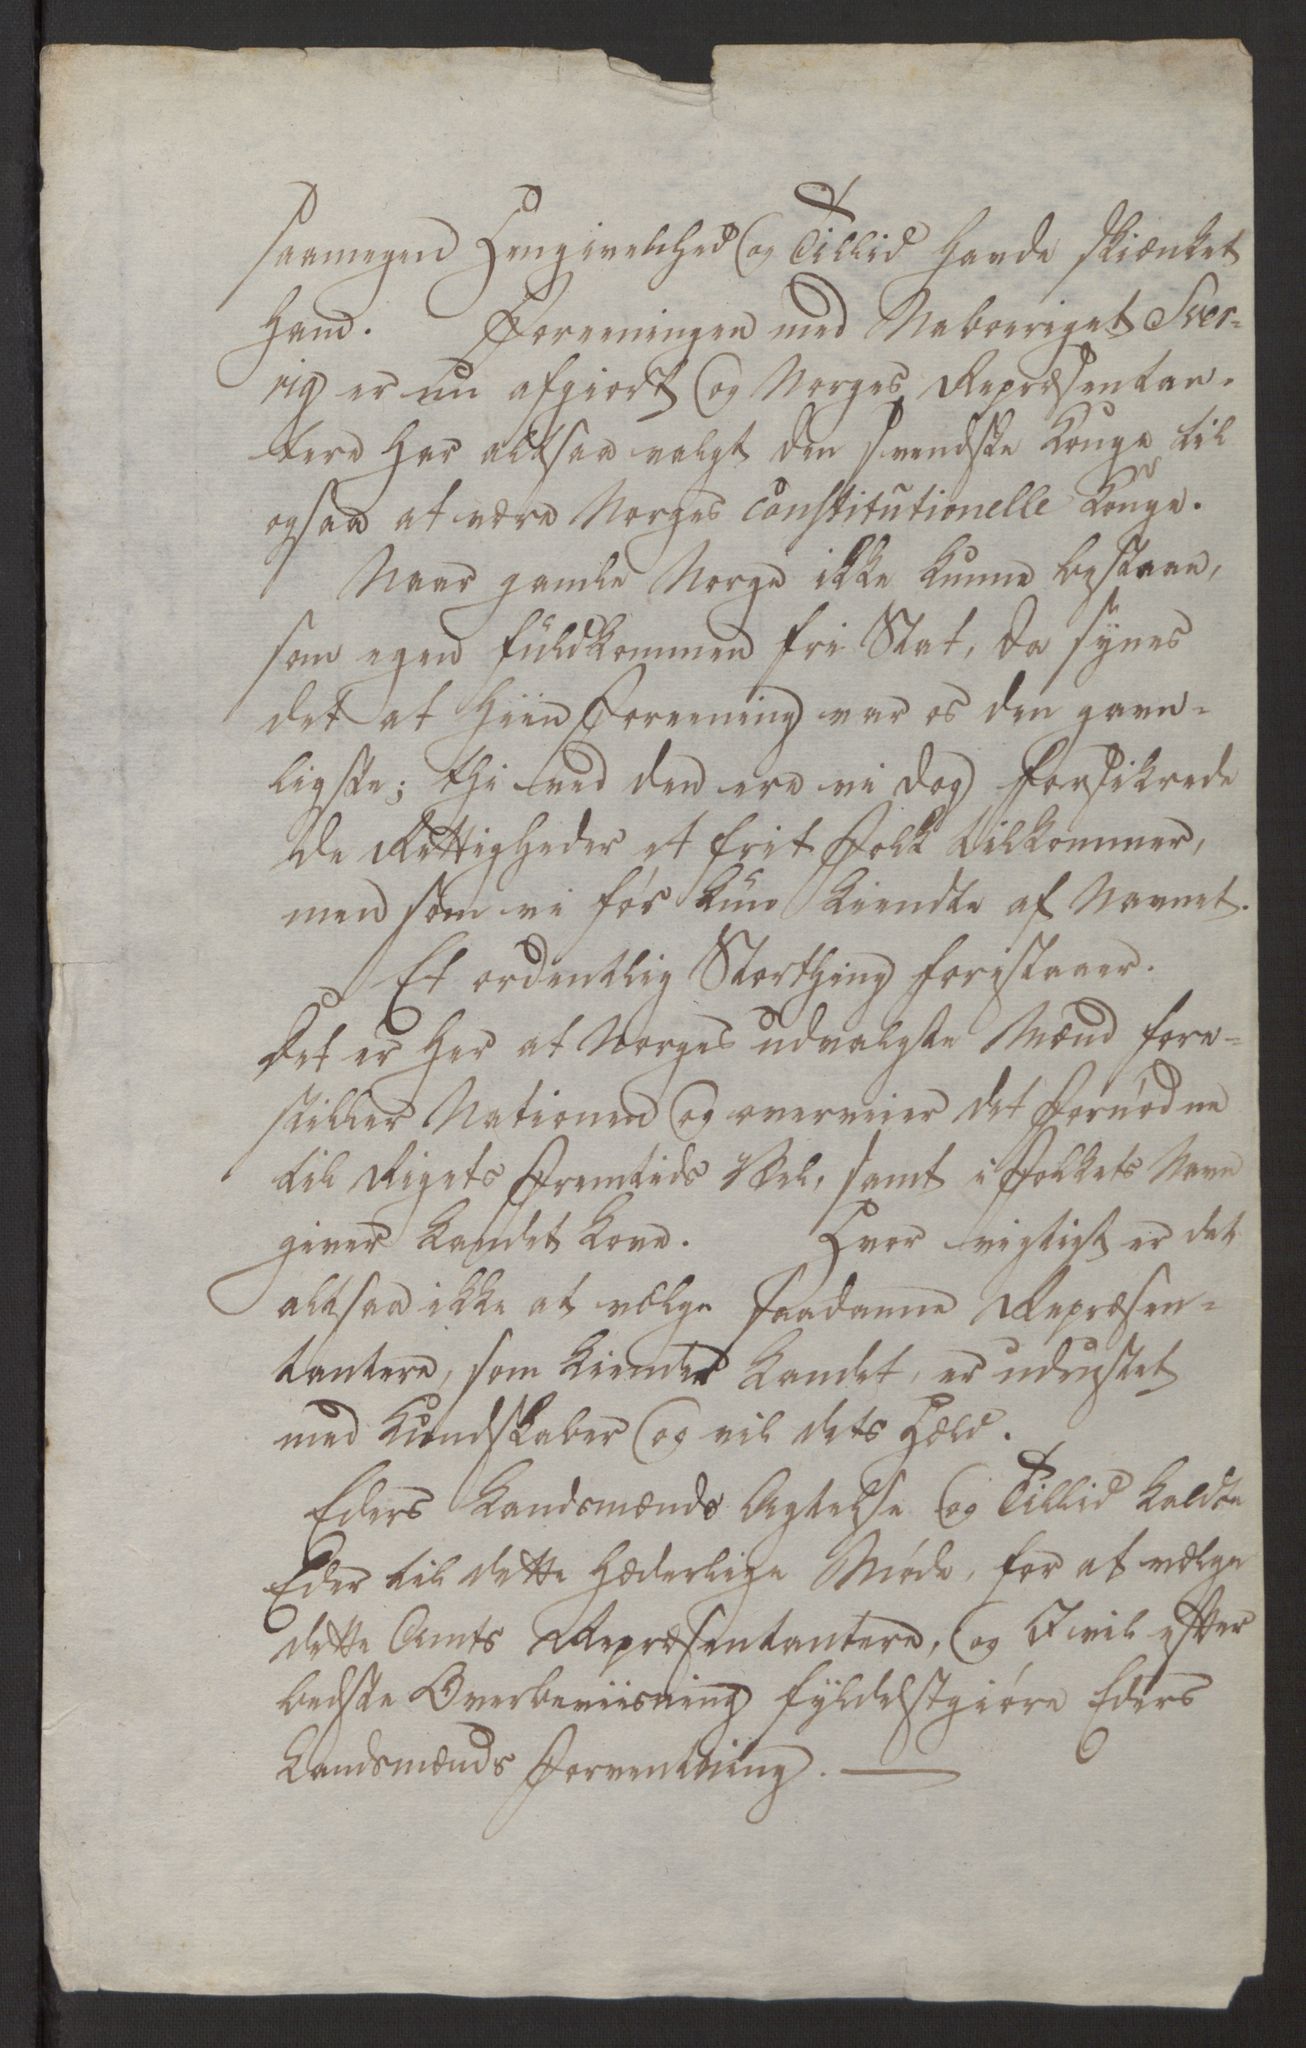 saamegen Hengivenhed og Tillid havde skiænket
ham. Foreeningen med Naboeriget Sver-
rig er nu afgiort og Norges Repræsentan-
tere har altsaa valgt den svendske Konge til
ogsaa at være Norges constitutionelle Konge.
Naar gamle Norge ikke kunne bestaae,
som egen fuldkommen fri Stat, da synes
det at hiin Foreening var os den gavn-
ligste; thi ved den ere vi dog forsikrede
de Rettigheder et frit Folk tilkommer,
men som vi før kun kiendte af Navnet.
Et ordentlig Storthing forestaaer.
Det er her at Norges udvalgte Mænd fore-
stiller Nationen og overveier det fornødne
til Rigets Fremtids Vel, samt i Folkets Navn
giver Landet Love. Hvor vigtigt er det
altsaa ikke at vælge saadanne Repræsen-
tantere, som kiender Landet, er udrustet
med Kundskaber og vil dets Held.
Eders Landsmænds Agtelse og Tillid kaldte
Eder til dette hæderlige Møde, for at vælge
dette Amts Repræsentantere, og I vil efter
bedste Overbeviisning fyldestgiøre Eders
Landsmænds Forventning.